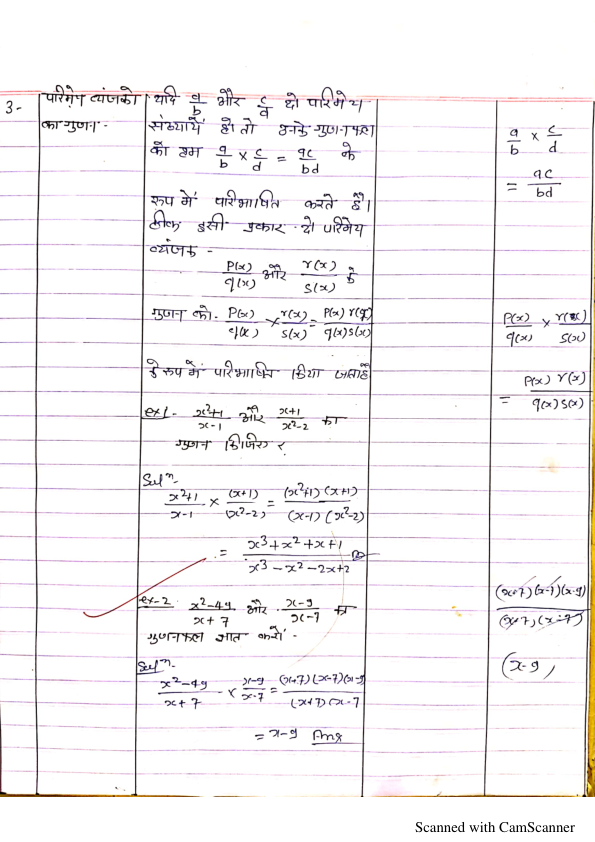 3-
परिमेय व्यंजको
का गुणन -
यदि a/b और c/d दो परिमेय
संख्यायें हो तो उनके गुणनफल
को हम a/b × c/d = ac/bd के
रूप में परिभाषित करते हैं।
ठीक इसी प्रकार दो परिमेय
व्यंजक -
P(x)/q(x) और r(x)/s(x) के
गुणन को- P(x)/q(x) × r(x)/s(x) = P(x) r(x)/q(x) s(x)
के रूप में परिभाषित किया जाता है
ex1- x²+1/x-1 और x+1/x²-2 का
गुणन कीजिए
Solⁿ-
x²+1/x-1 × (x+1)/(x²-2) = (x²+1)(x+1)/(x-1)(x²-2)
= x³+x²+x+1/x³-x²-2x+2
ex-2 x²-49/x+7 और x-9/x-7 का
गुणनफल ज्ञात करो -
Solⁿ-
x²-49/x+7 × x-9/x-7 = (x+7)(x-7)(x-9)/(x+7)(x-7
= x-9 Ans
a/b × c/d
= ac/bd
P(x)/q(x) × r(x)/s(x)
= P(x) r(x)/q(x) s(x)
(x+7)(x-7)(x-9)/(x+7)(x-7)
(x-9)
Scanned with CamScanner